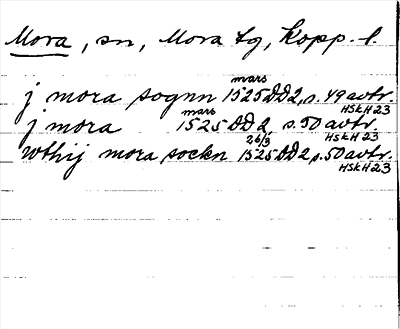 Mora, sn, Mora tg, Kopp. l.
mars
j mora sognn 1525 DD2, s. 49 avtr.
HSKH 23
mars
j mora 1525 DD2, s. 50 avtr.
26/3 HSKH 23
wthij mora sockn 1525 DD2 s. 50 avtr.
HSKH 23